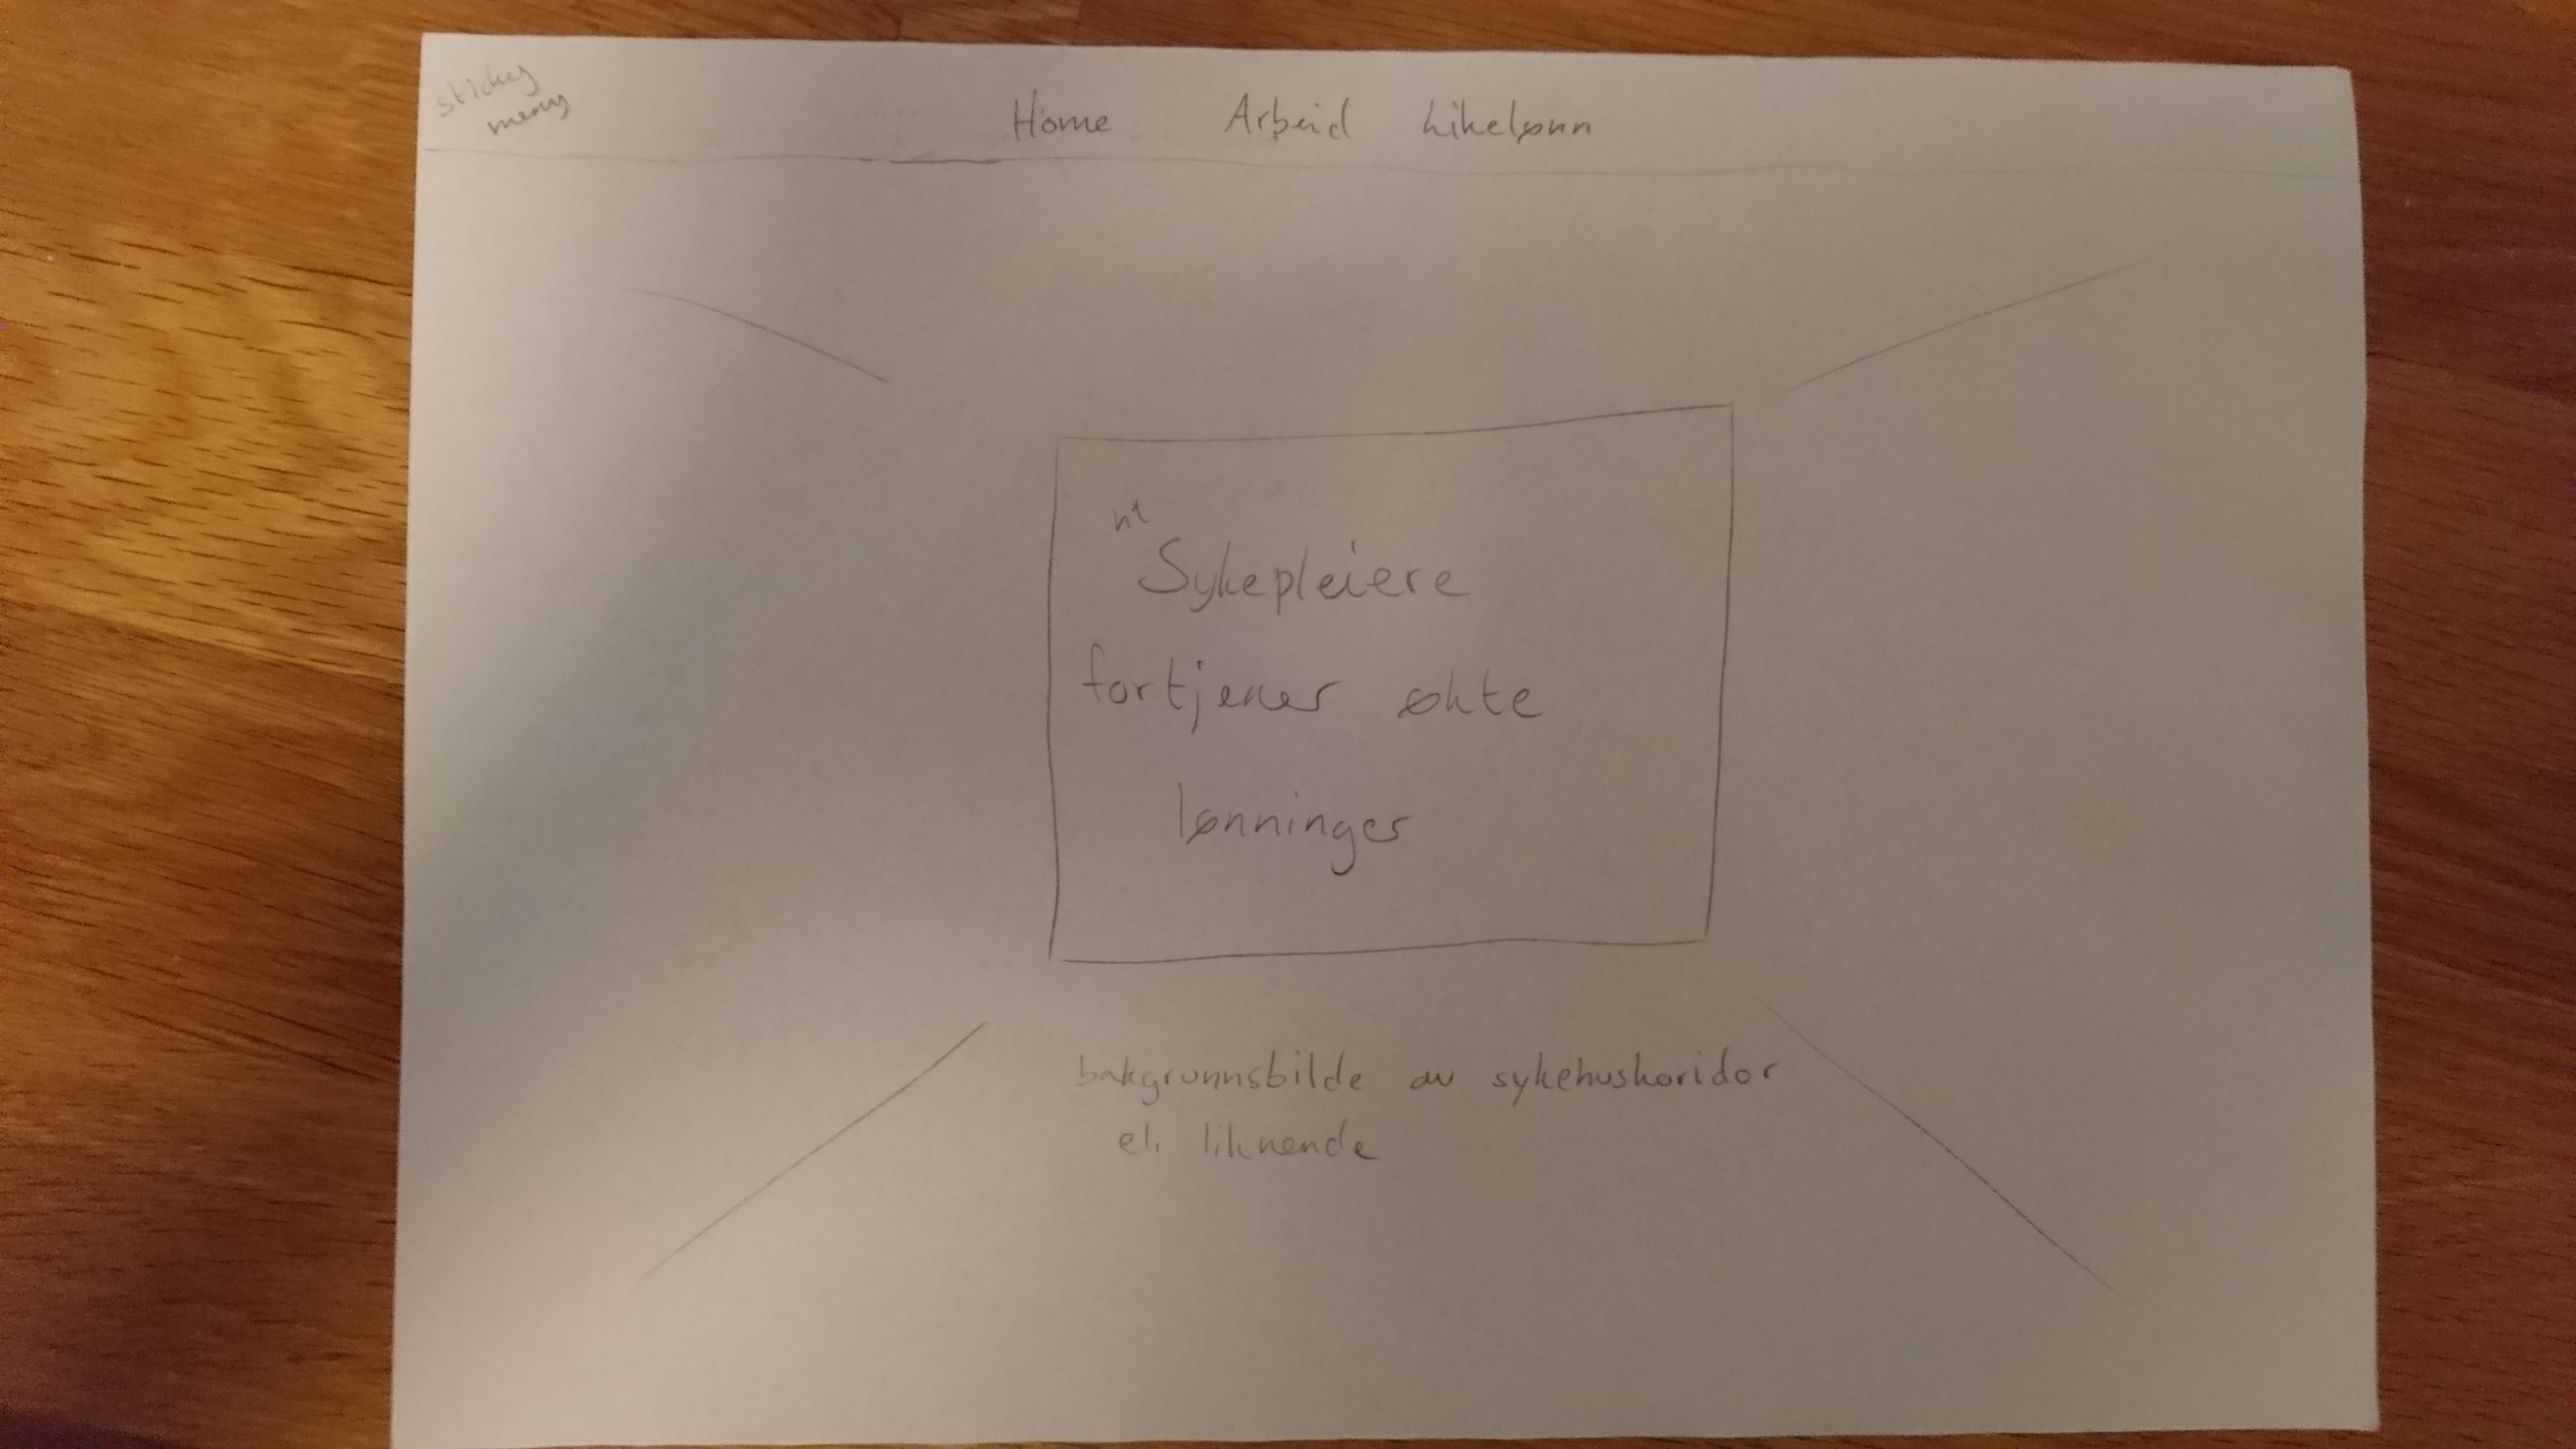 sticky
meny
Home Arbeid Likelønn
h1
Sykepleiere
fortjener økte
lønninger
bakgrunnsbilde av sykehuskoridor
el. liknende